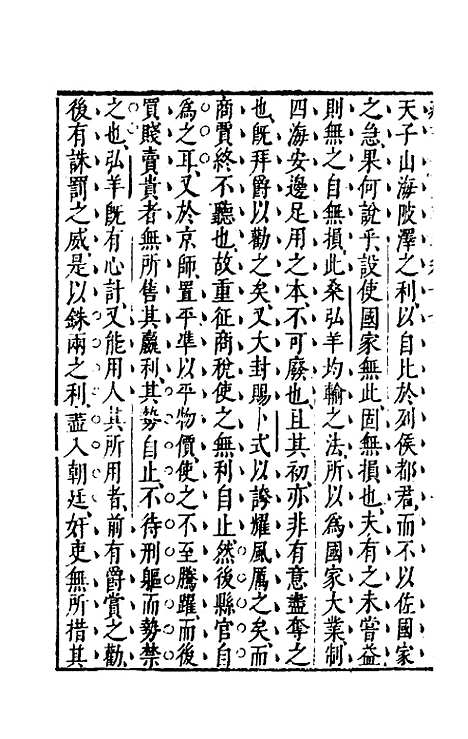 天子山海陂澤之利以自比於列侯都君而不以佐國家
之急果何說乎設使國家無此固無損也夫有之未嘗益
則無之自無損此桑弘羊均輸之法所以為國家大業制
四海安邊足用之本不可廢也且其初亦非有意盡奪之
也既拜爵以勸之矣又大封賜卜式以誇耀風厲之矣而
商賈終不聽也故重征商稅使之無利自止然後縣官自
為之耳又於京師置平準以平物價使之不至騰躍而後
買賤賣貴者無所售其贏利其勢自止不待刑驅而勢禁
之也弘羊既有心計又能用人其所用者前有爵賞之勸
後有誅罰之威是以銖兩之利盡入朝廷奸吏無所措其